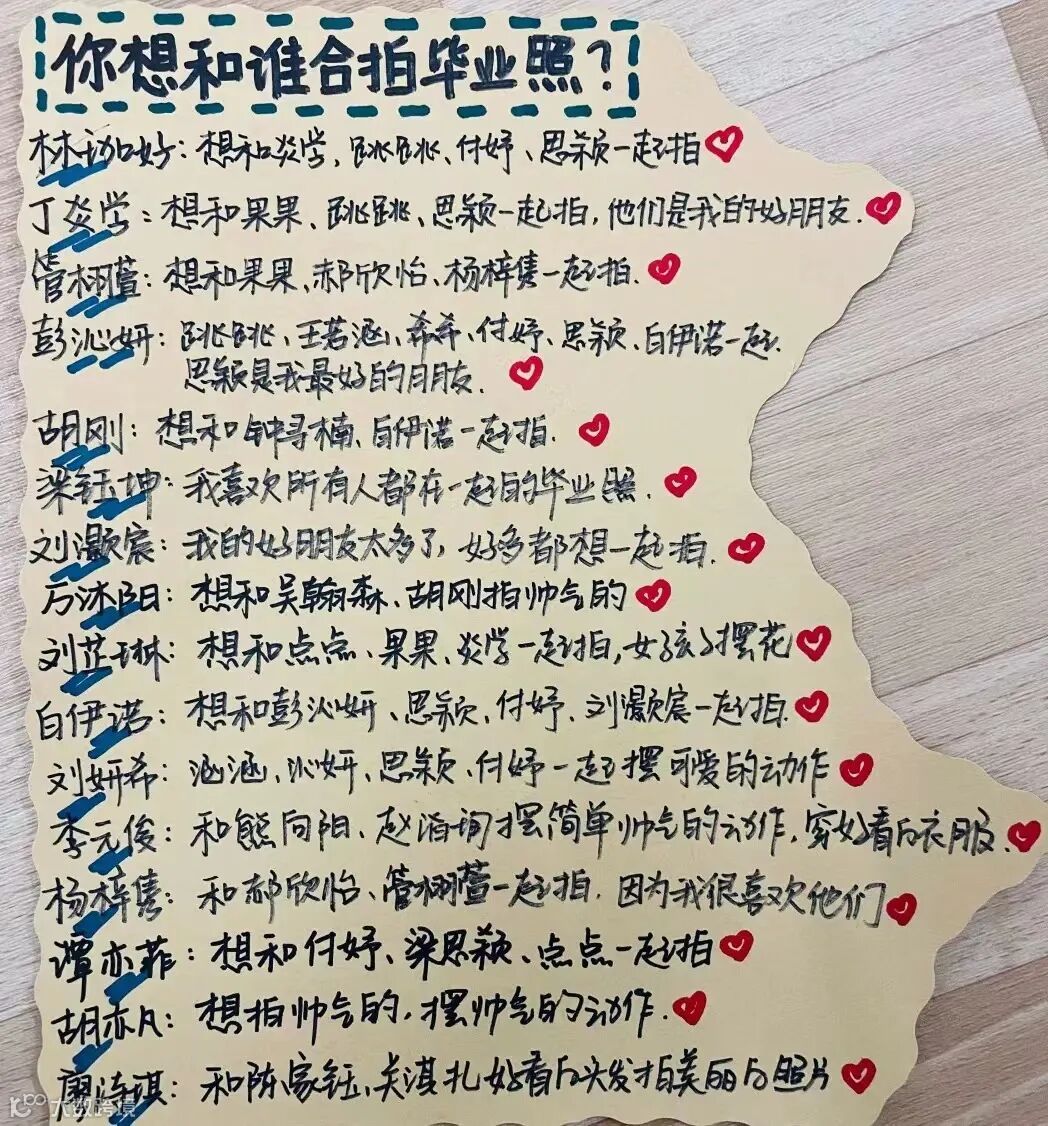 你想和谁合拍毕业照？
林劭好：想和炎学、跳跳、付妤、思颖一起拍
丁炎学：想和果果、跳跳、思颖一起拍，他们是我的好朋友.
管栩萱：想和果果、郝欣怡、杨梓隽一起拍.
彭沁妍：跳跳、王若涵、希希、付妤、思颖、白伊诺一起.
思颖是我最好的朋友.
胡刚：想和钟寻楠、白伊诺一起拍.
梁钰坤：我喜欢所有人都在一起的毕业照.
刘灏宸：我的好朋友太多了，好多都想一起拍.
万沐阳：想和吴翰森、胡刚拍帅气的
刘芷琳：想和点点、果果、炎学一起拍，女孩子摆花
白伊诺：想和彭沁妍、思颖、付妤、刘灏宸一起拍.
刘妍希：涵涵、沁妍、思颖、付妤一起摆可爱的动作
李元俊：和熊向阳、赵滔珣摆简单帅气的动作，穿好看的衣服.
杨梓隽：和郝欣怡、管栩萱一起拍.因为我很喜欢他们
谭亦菲：想和付妤、梁思颖、点点一起拍
胡亦凡：想拍帅气的，摆帅气的动作.
廖诗琪：和陈家钰、关淇扎好看的头发拍美丽的照片
大数跨境